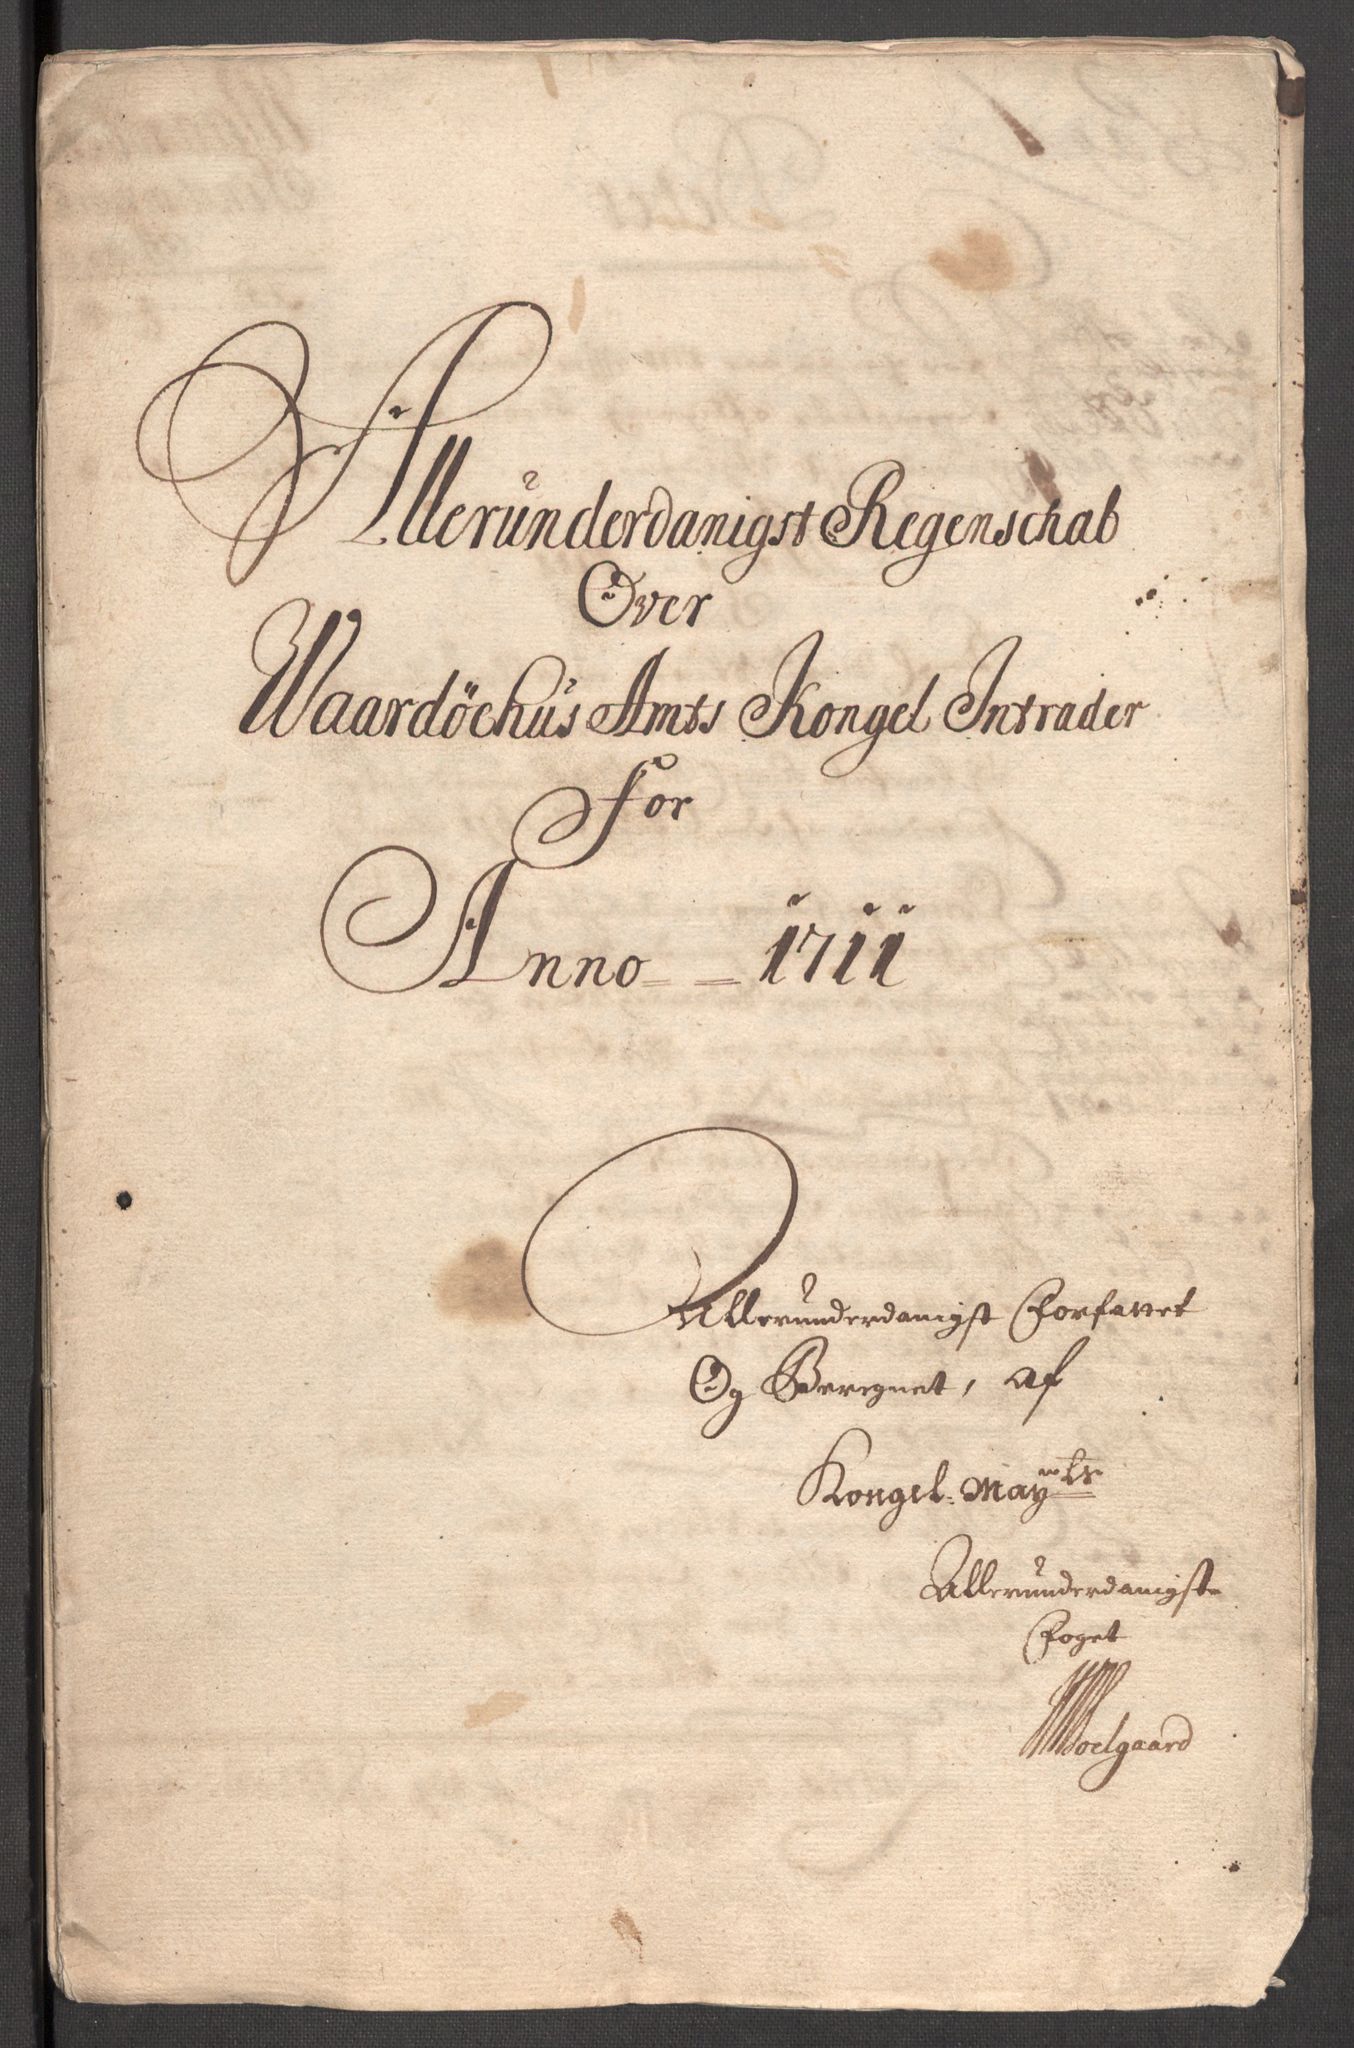 Alleründerdanigst Regenschab
Over
Waardöehüs Amts Kongel Intrader
For
Anno - - 1711
Alleründerdanigst Forfattet
Og Beregnet, af
Kongel: Mayts
Alleründerdanigst
Foget